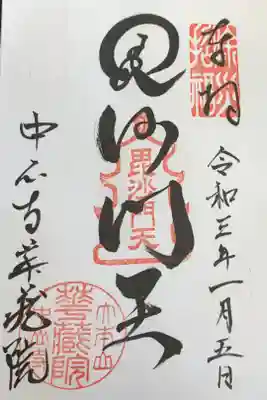 奉拝
令和三年一月五日
毘沙門天
毘沙門天
中山寺華蔵院
大本山
華藏院
中山寺